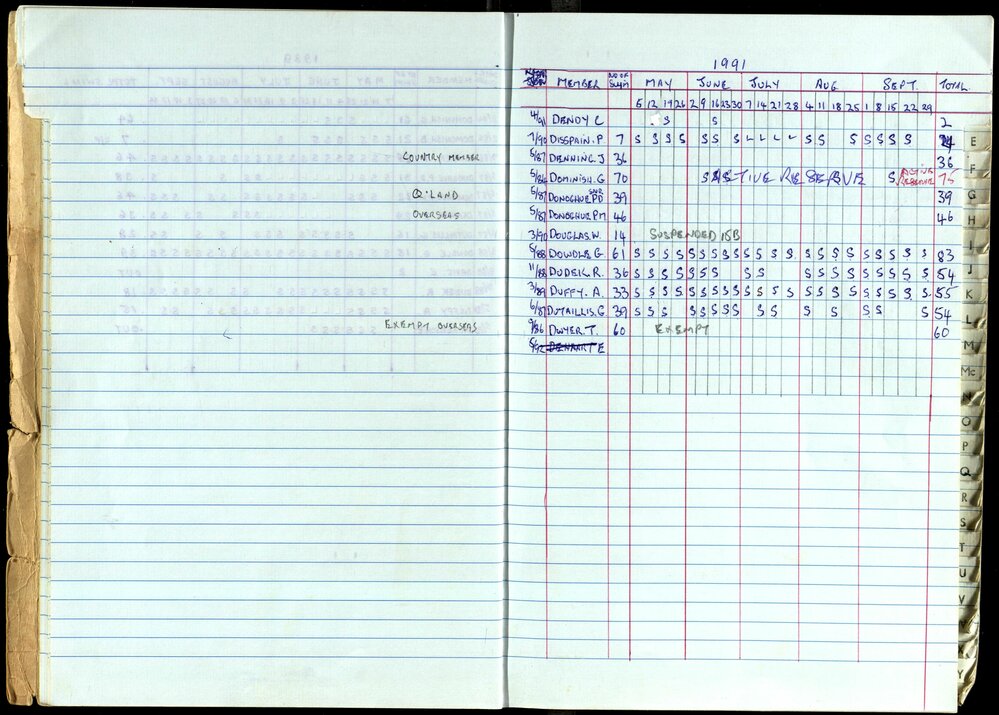 1991
MEMBER NO OF SWIM MAY JUNE JULY AUG SEPT. TOTAL
5 12 19 26 2 9 16 23 30 7 14 21 28 4 11 18 25 1 8 15 22 29
4/91 DENDY C S S 2
7/90 DISSPAIN.P 7 S S S S S S S S L L L L S S S S S S S
COUNTRY MEMBER 5/87 DENNING.J 36 36
5/86 DOMINISH.G 70 S ACTIVE RESERVE S ACTIVE RESERVE 75
Q'LAND 5/87 DONOGHUE.PD SNR 39 39
OVERSEAS 5/87 DONOGHUE PM 46 46
3/90 DOUGLAS.W. 14 SUSPENDED 15B
5/88 DOWDLE G. 61 S S S S S S S S S S S S S S S S S S S S S S 83
11/88 DUDEIC.R. 36 S S S S S S S S S S S S S S S S S S 54
3/89 DUFFY.A. 33 S S S S S S S S S S S S S S S S S S S S S S 55
6/87 DUTAILLIS.G 39 S S S S S S S S S S S S S S S 54
EXEMPT OVERSEAS 9/86 DWYER.T. 60 EXEMPT 60
5/92
E
F
G
H
I
J
K
L
M
Mc
N
O
P
Q
R
S
T
U
V
W
X
Y